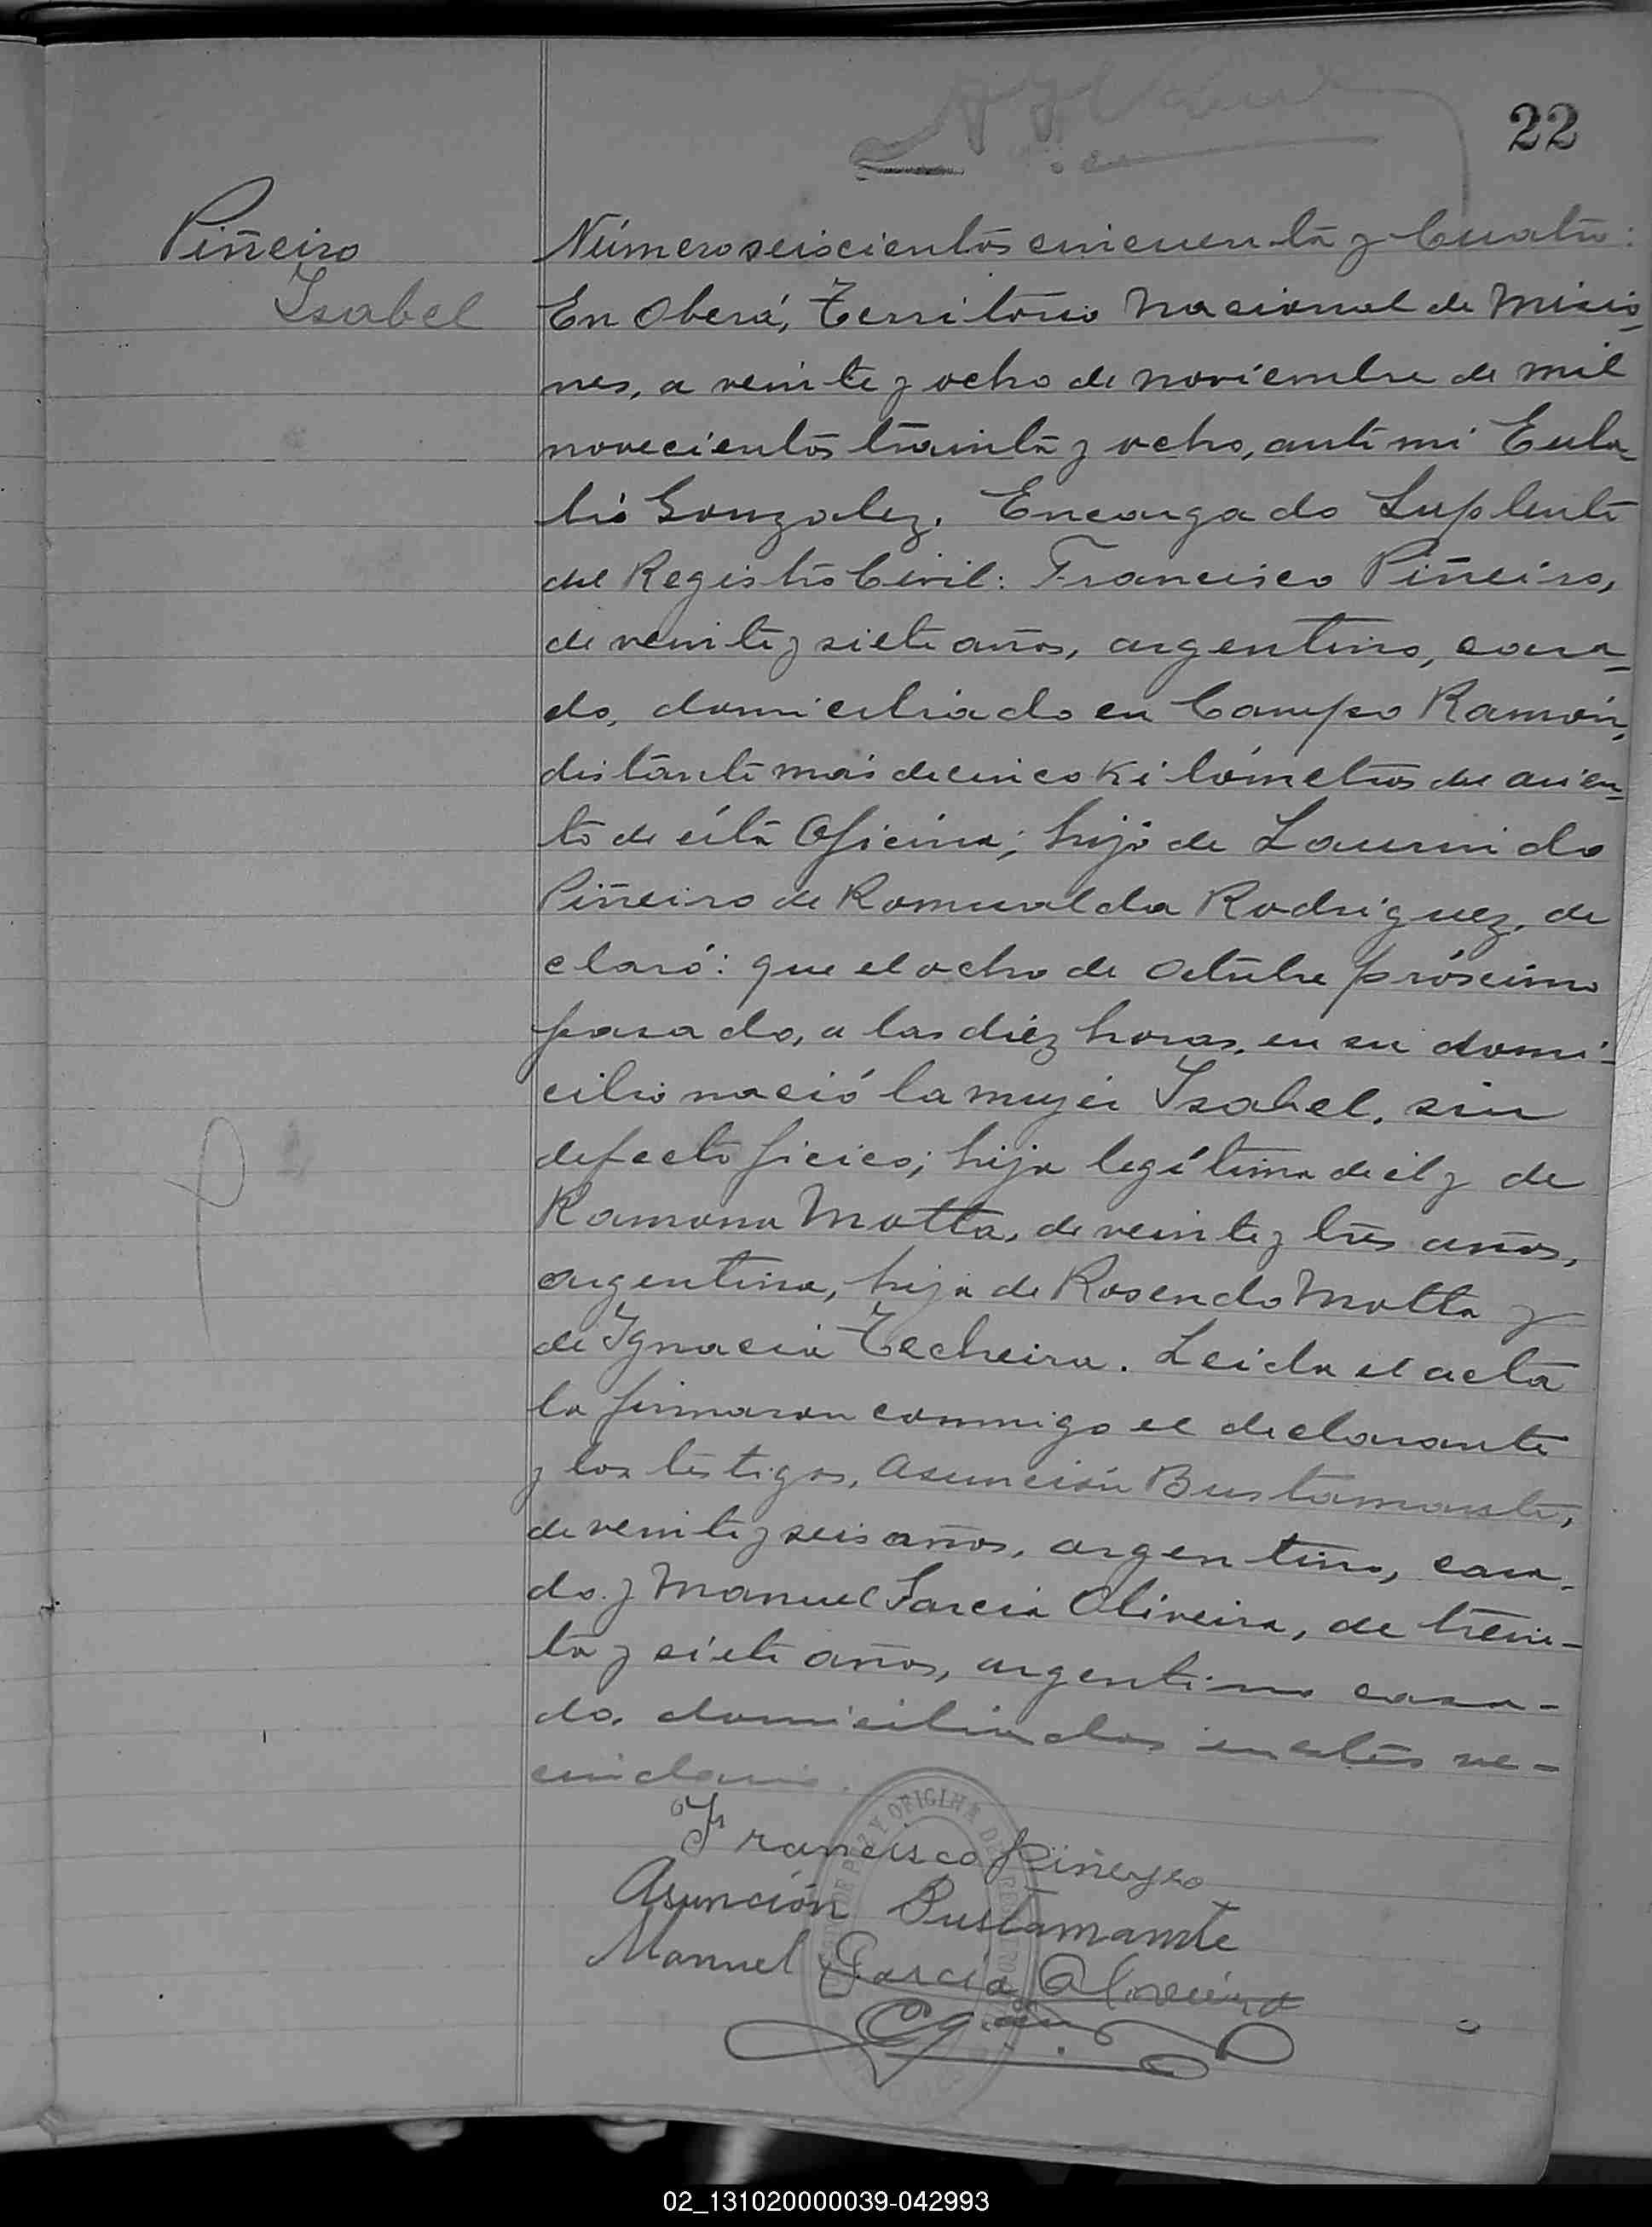 22
Piñeiro
Isabel
Número seiscientos cincuenta y Cuatro:
En Oberá, Territorio Nacional de Misio
nes, a veinte y ocho de noviembre de mil
novecientos treinta y ocho, ante mi Eula
lio Gonzalez, Encargado Suplente
del Registro Civil: Francisco Piñeiro,
de veinte y siete años, argentino, casa
do, domiciliado en Campo Ramón,
distante más de cinco kilómetros de asien
to de ésta Oficina; hijo de Laurindo
Piñeiro de Romualda Rodriguez, de
claró: que el ocho de octubre próximo
pasado, a las diéz horas, en su domi-
cilio nació la mujer Isabel, sin
defecto ficico; hija legítima de él y de
Ramona Motta, de veinte y tres años,
argentina, hija de Rosendo Motta y
de Ignacia Techeira. Leida el acta
la firmaron conmigo el declarante
y los testigos, Asunción Bustamante,
de veinte y seis años, argentino, casa-
do y Manuel Garcia Oliveira, de trein-
ta y siete años, argentino casa-
do, domiciliados en este ve-
cindario.
Francisco Piñeyro
Asunción Bustamante
Manuel García Oliveira
02_131020000039-042993